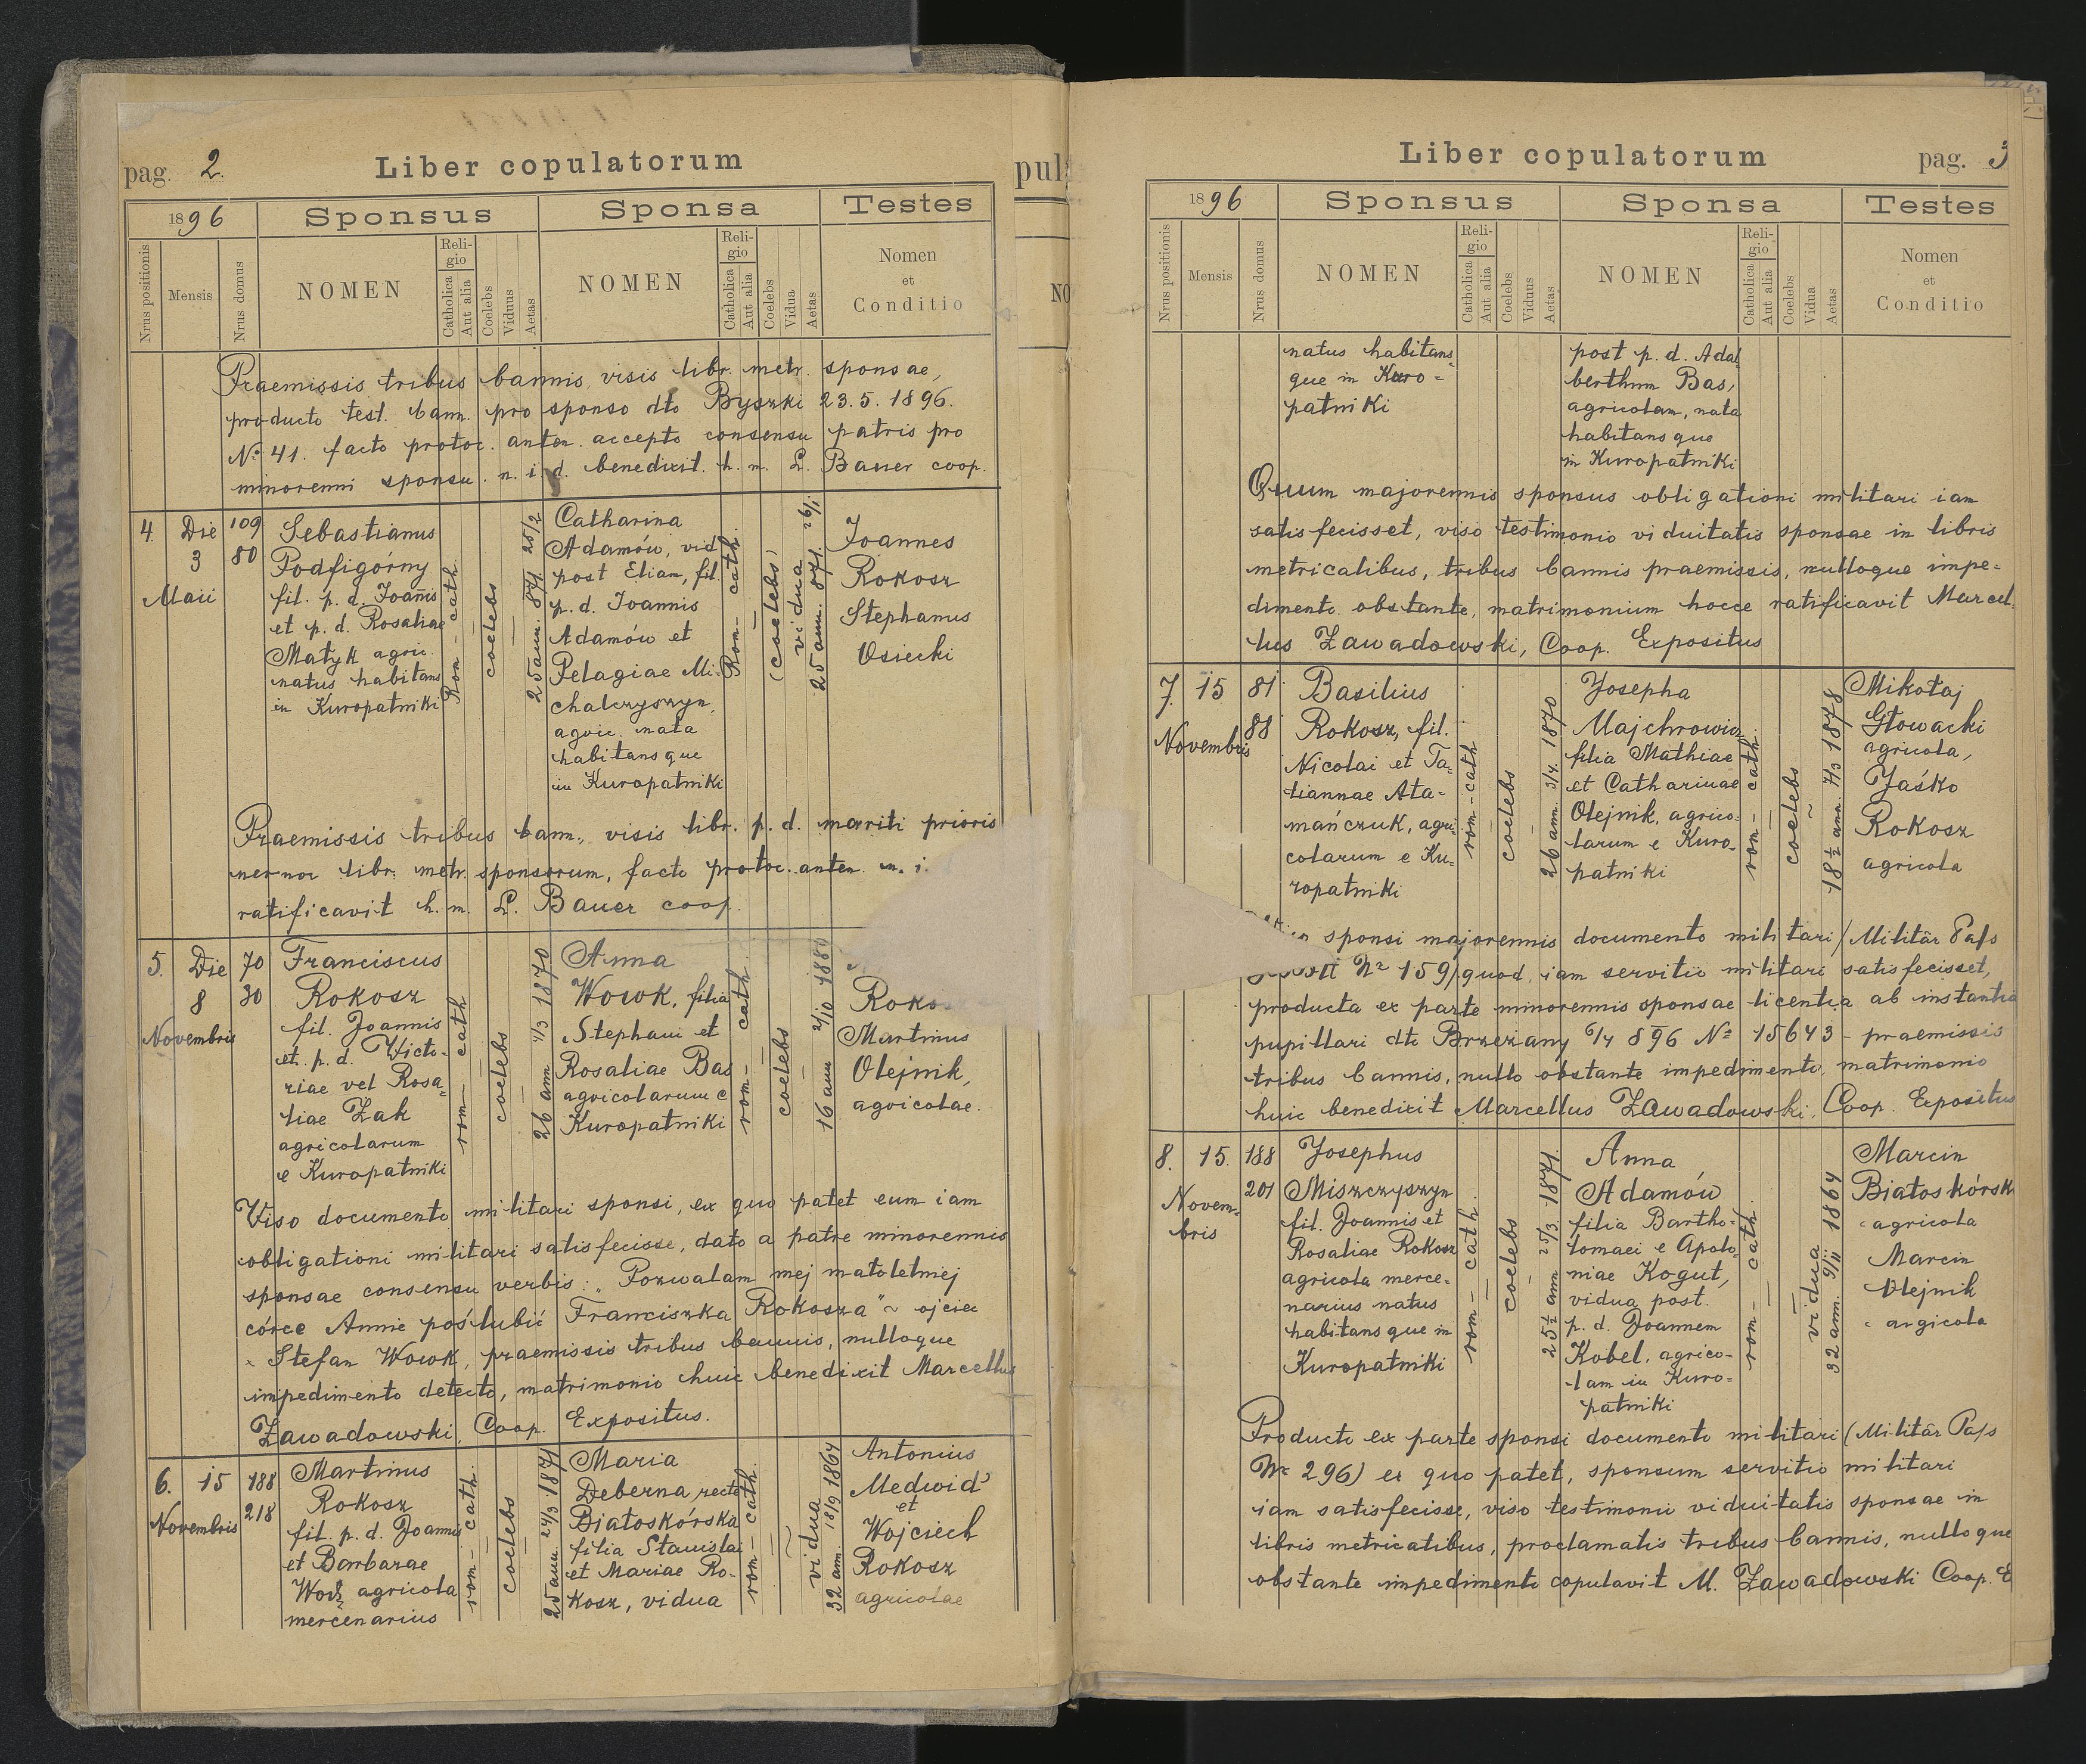 pag. 2.
Liber copulatorum
1896
Sponsus
Sponsa
Testes
Nrus positionis
Mensis
Nrus domus
NOMEN
Religio
Catholica
Aut alia
Coelebs
Viduus
Aetas
NOMEN
Religio
Catholica
Aut alia
Coelebs
Vidua
Aetas
Nomen
et
Conditio
Praemissis tribus bannis visis libr. metr. sponsae,
producto test. bann. pro sponso dto Byszki 23.5.1896.
No 41. facto protoc. anten. accepto consensu patris pro
minorenni sponsu. n. i. d. benedixit. h. m. L. Bauer coop.
4.
Die
3
Maii
109
80
Sebastianus
Podfigórny
fil. p. d. Joanis
et p. d. Rosaliae
Matyk agric.
natus habitans
in Kuropatniki
Rom - cath.
coelebs
25 ann. 871 25/2
Catharina
Adamów, vid
post Eliam, fil.
p. d. Joannis
Adamów et
Pelagiae Mi-
chalczyszyn,
agric. nata
habitansque
in Kuropatniki
Rom - cath.
(coelebs)
vidua
25 ann. 871. 26/11
Joannes
Rokosz
Stephanus
Osiecki
Praemissis tribus bann., visis libr. p. d. mariti prioris
libr. metr. sponsorum, facto protoc. anten. n. i.
ratificavit h. m. L. Bauer coop.
5.
Die
8
Novembris
70
30
Franciscus
Rokosz
fil. Joannis
et p. d. Victo-
riae vel Rosa-
liae Żak
agricolarum
e Kuropatniki
rom - cath
coelebs
26 ann 4/3 1870
Anna
Wowk, filia
Stephani et
Rosaliae Bas
agricolarum e
Kuropatniki
rom - cath.
coelebs
16 ann 2/10 1880
Roko
Martinus
Olejnik,
agricolae.
Viso documento militari sponsi, ex quo patet eum iam
obligationi militari satisfecisse, dato a patre minorennis
sponsae consensu verbis: „Pozwalam mej małoletniej
córce Annie poślubić Franciszka Rokosza" ~ ojciec
Stefan Wowk, praemissis tribus bannis, nulloque
impedimento detecto, matrimonio huic benedixit Marcellus
Zawadowski, Coop. Expositus.
6.
15
Novembris
188
218
Martinus
Rokosz
fil. p. d. Joannis
et Barbarae
agricola
mercenarius
rom - cath.
coelebs
25 ann. 24/3 1871
Maria
Deberna recte
Białoskórska
filia Stanislai
et Mariae Ro-
kosz, vidua
rom - cath.
vidua
32 ann. 18/9 1864
Antonius
Medwid'
et
Wojciech
Rokosz
agricolae
pul
NO
Liber copulatorum
pag. 3
1896
Sponsus
Sponsa
Testes
Nrus positionis
Mensis
Nrus domus
NOMEN
Religio
Catholica
Aut alia
Coelebs
Viduus
Aetas
NOMEN
Religio
Catholica
Aut alia
Coelebs
Vidua
Aetas
Nomen
et
Conditio
natus habitans-
que in Kuro-
patniki
post p. d. Adal
berthum Bas,
agricolam, nata
habitansque
in Kuropatniki
Quum majorennis sponsus obligationi militari iam
satisfecisset, viso testimonio viduitatis sponsae in libris
metricalibus, tribus bannis praemissis, nulloque impe-
dimento obstante, matrimonium hocce ratificavit Marcel-
lus Zawadowski, Coop. Expositus
7.
15
Novembris
81
88
Basilius
Rokosz, fil.
Nicolai et Ta-
tiannae Ata-
mańczuk, agri
colarum e Ku-
ropatniki
rom - cath
coelebs
26 ann. 3/4. 1870
Josepha
Majchrowicz
filia Mathiae
et Catharinae
Olejnik, agrico-
larum e Kuro-
patniki
rom - cath.
coelebs
18 1/2 ann. 7/3 1878
Mikołaj
Głowacki
agricola,
Jaśko
Rokosz
agricola
sponsi majorennis documento militari (Militär Pass
No 159) quod iam servitio militari satisfecisset,
producta ex parte minorennis sponsae licentia ab instantia
pupillari dto Brzeżany 6/4 896 No 15643 - praemissis
tribus bannis, nullo obstante impedimento, matrimonio
huic benedixit Marcellus Zawadowski, Coop. Expositus
8.
15.
Novem-
bris
188
201
Josephus
Miszczyszyn
fil. Joannis et
Rosaliae Rokosz
agricola merce-
narius natus
habitansque in
Kuropatniki
rom - cath.
coelebs
25 1/2 ann 25/3 1871.
Anna
Adamów
filia Bartho-
lomaei e Apolo-
niae Kogut,
vidua post.
p. d. Joannem
Kobel, agrico-
lam in Kuro-
patniki
rom - cath.
vidua
32 ann. 9/11 1864
Marcin
Białoskórsk
agricola
Marcin
Olejnik
argicola
Producto ex parte sponsi documento militari (Militär Pass
No 296) ex quo patet, sponsum servitio militari
iam satisfecisse, viso testimonii viduitatis sponsae in
libris metricalibus, proclamatis tribus bannis, nulloque
obstante impedimento copulavit M. Zawadowski Coop. E